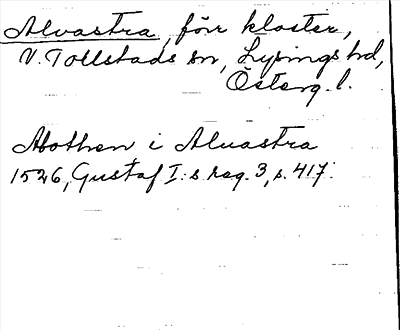 Alvastra, förr kloster,
V. Tollstads sn, Lysings hd,
Österg. l.
Abothen i Alvastra
1526, Gustaf I:s reg. 3, s. 417.